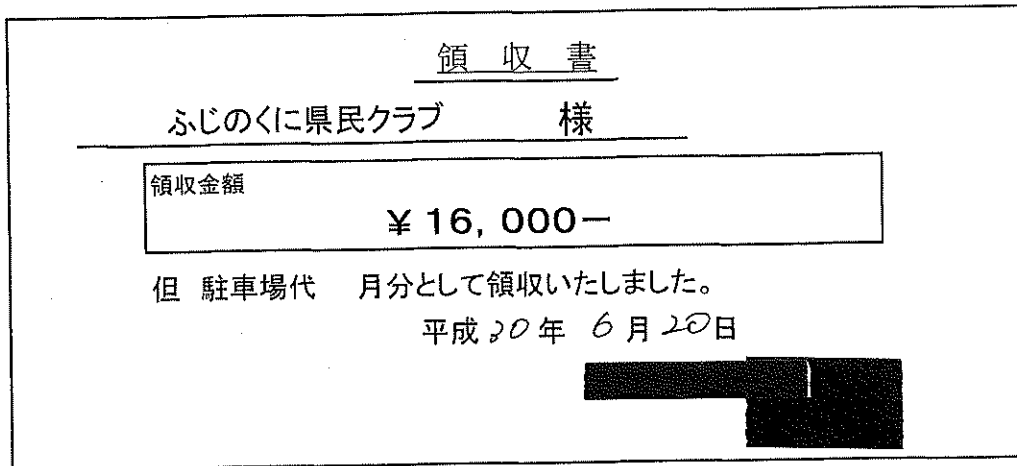 領 収 書
ふじのくに県民クラブ 様
領収金額
¥16,000ー
但 駐車場代 月分として領収いたしました。
平成30年 6月20日